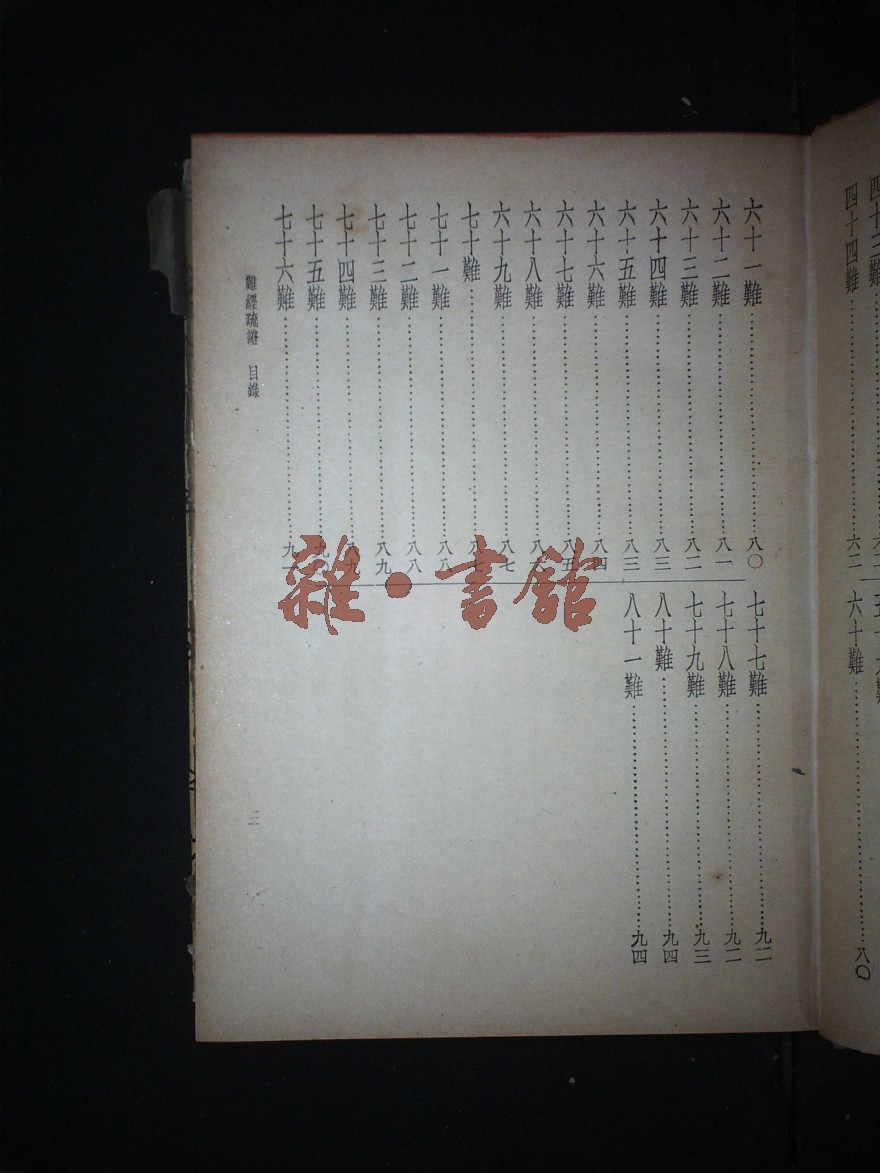 四十四難……六二
六十難……八〇
六十一難……八〇
六十二難……八一
六十三難……八二
六十四難……八三
六十五難……八三
六十六難……八四
六十七難……八五
六十八難……八六
六十九難……八七
七十難……八七
七十一難……八八
七十二難……八八
七十三難……八九
七十四難……八九
七十五難……九〇
七十六難……九一
七十七難……九二
七十八難……九二
七十九難……九三
八十難……九四
八十一難……九四
難經疏證 目錄
三
雜·書館